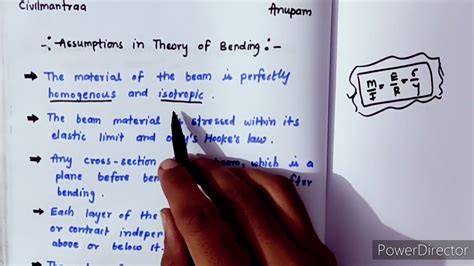 Civilmantraa
Anupam
Assumptions in Theory of Bending
The material of the beam is perfectly
homogenous and isotropic.
The beam material stressed within its
elastic limit and Hooke's law.
Any cross-section which is a
plane before after
bending.
Each layer of the
or contract independent
above or below it.
M/I = E/R = σ/y
PowerDirector